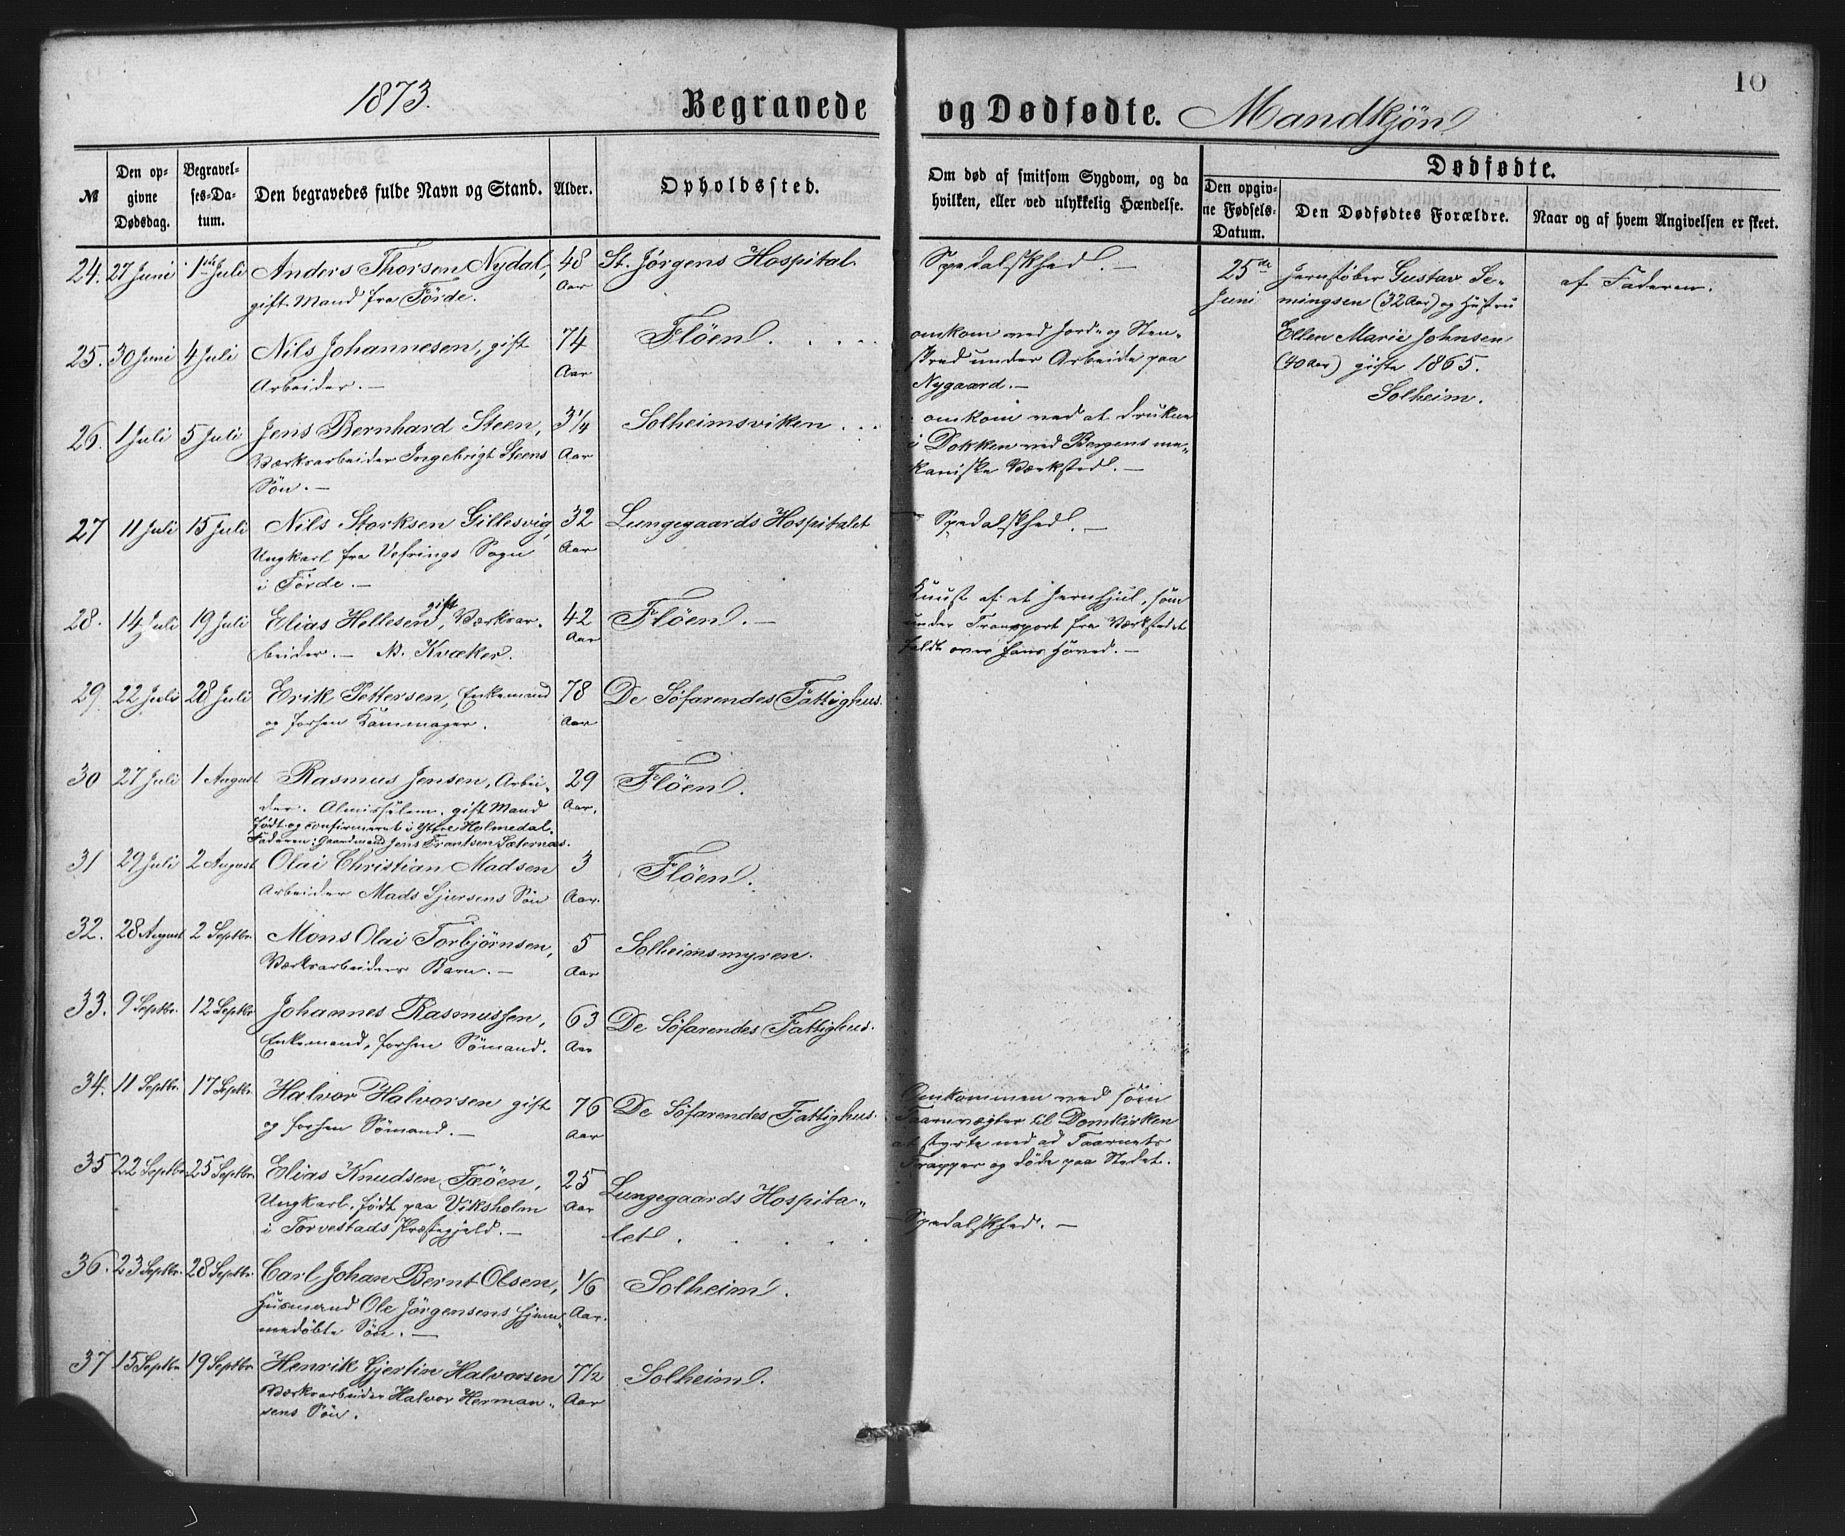 10
1873.
Begravede og Dødfødte. Mandkjøn
№
Den op-
givne
Dødsdag.
Begravel-
ses-Da-
tum.
Den begravedes fulde Navn og Stand.
Alder.
Opholdssted.
Om død af smitsom Sygdom, og da
hvilken, eller ved ulykkelig Hændelse.
Dødfødte.
Den opgiv-
ne Fødsels-
Datum.
Den Dødfødtes Forældre.
Naar og af hvem Angivelsen er skeet.
24. 27 Juni 1ste Juli Anders Thorsen Nydal, 48 St. Jørgens Hospital Spedalskhed. —
gift Mand fra Förde. Aar
25de Jernstøber Gustav Se-
Juni mingsen (32 Aar) og Hustru
Ellen Marie Johnsen
(40 Aar) gifte 1865.
Solheim.
af Faderen.
25. 30 Juni 4 Juli Nils Johannesen, gift 74 Flöen. omkom ved Jord- og Sten-
Arbeider. — Aar skred under Arbeide paa
Nygaard. —
26. 1 Juli 5 Juli Jens Bernhard Steen, 3 1/4 Solheimsviken omkom ved at drukne
Værksarbeider Ingebrigt Steens Aar i Dokken ved Bergens me-
Sön. — kaniske Værksted. —
27 11 Juli 15 Juli Nils Storksen Gillesvig, 32 Lungegaards Hospitalet Spedalskhed. —
Ungkarl fra Vefrings Sogn Aar
i Förde. —
28. 14 Juli 19 Juli Elias Hellesen, gift Værksar- 42 Flöen. — Knust af et Jernhjul, som
beider. — N. Kvæker. Aar under Transport fra Værkstedet
faldt over hans Hoved. —
29. 22 Juli 28 Juli Erik Pettersen, Enkemand 78 De Söfarendes Fattighus.
og forhen Kammager. Aar
30 27 Juli 1 August Rasmus Jensen, Arbei- 29 Flöen.
der. Almisselem. gift Mand Aar.
födt og confirmeret i Yttre Holmedal.
Faderen: Gaardmand Jens Frantsen Sæternæs.
31 29 Juli 2 August Olai Christian Madsen 3 Flöen.
Arbeider Mads Sjursens Sön Aar.
32. 28 August 2 Septbr. Mons Olai Torbjørnsen, 5 Solheimsmyren.
Værksarbeiders Barn. — Aar
33. 9 Septbr. 12 Septbr. Johannes Rasmussen, 63 De Söfarendes Fattighus.
Enkemand, forhen Sömand. Aar
34. 11 Septbr. 17 Septbr. Halvor Halvorsen gift 76 De Söfarendes Fattighus. Omkommen ved som
og forhen Sömand. — Aar Taarnvægter til Domkirken
at styrte ned ad Taarnets
Trapper og döde paa Stedet.
35 22 Septbr. 25 Septbr. Elias Knudsen Fæöen, 25 Lungegaards Hospita-
Ungkarl, födt paa Viksholm Aar let. Spedalskhed. —
i Torvestads Præstegjeld. —
36. 23 Septbr. 28 Septbr. Carl Johan Bernt Olsen, 1/6 Solheim.
Husmand Ole Jörgensens hjem- Aar.
medöbte Sön. —
37 15 Septbr. 19 Septbr. Henrik Gjertin Halvorsen 7 1/2 Solheim.
Værksarbeider Halvor Herman- Aar
sens Sön.